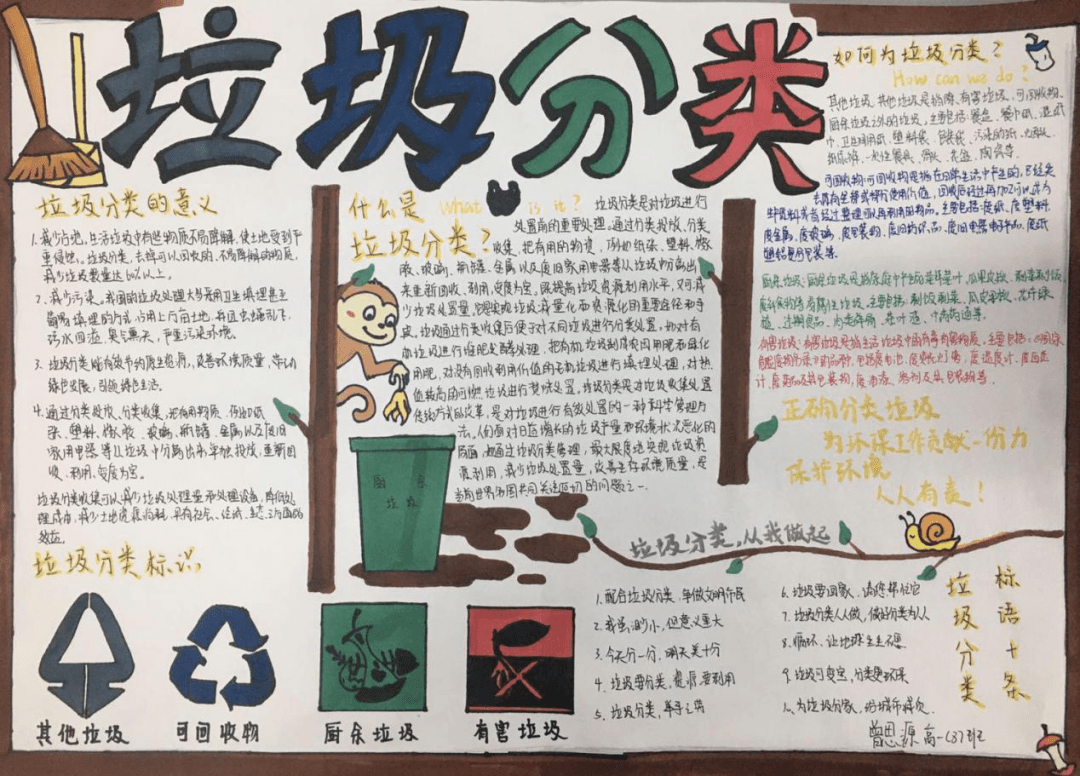 垃圾分类
垃圾分类的意义
1.减少占地。生活垃圾中有些物质不易降解,使土地受到严
重侵蚀。垃圾分类,去掉可以回收的、不易降解的物质,
减少垃圾数量达60%以上。
2.减少污染。我国的垃圾处理大多采用卫生填埋甚至
简易填埋的方式,占用上万亩土地,并且虫蝇乱飞,
污水四溢,臭气熏天,严重污染环境。
3.垃圾分类能有效节约原生资源,改善环境质量,带动
绿色发展,引领绿色生活。
4.通过分类投放、分类收集,把有用物质,例如纸
张、塑料、橡胶、玻璃、瓶罐、金属以及废旧
家用电器等从垃圾中分离出来单独投放,重新回
收、利用,变废为宝。
垃圾分类收集可以减少垃圾处理量和处理设备,降低处
理成本,减少土地资源的消耗,具有社会、经济、生态三方面的
效益。
垃圾分类标识
其他垃圾
可回收物
厨余垃圾
有害垃圾
什么是 What is it?
垃圾分类?
垃圾分类是对垃圾进行
处置前的重要处理。通过分类投放、分类
收集,把有用的物资,例如纸张、塑料、橡
胶、玻璃、瓶罐、金属以及废旧家用电器等从垃圾中分离出
来重新回收、利用,变废为宝。既提高垃圾资源利用水平,又可减
少垃圾处置量,它是实现垃圾减量化和资源化的重要途径和手
段。垃圾通过分类收集后便于对不同垃圾进行分类处置,如对有
机垃圾进行堆肥发酵处理,把有机垃圾制成农肥和绿化
用肥,对没有回收利用价值的无机垃圾进行填埋处理,对热
值较高的可燃垃圾进行焚烧处置。垃圾分类是对垃圾收集处置
传统方式的改革,是对垃圾进行有效处置的一种科学管理方
法。人们面对日益增长的垃圾产量和环境状况恶化的
局面,如通过垃圾分类管理,最大限度地实现垃圾资
源利用,减少垃圾处置量,改善生存环境质量,是
当前世界各国共同关注的迫切的问题之一。
厨余
垃圾
如何为垃圾分类?
How can we do?
其他垃圾:其他垃圾是指除有害垃圾、可回收物、
厨余垃圾之外的垃圾,主要包括:餐盒、餐巾纸、湿纸
巾、卫生间用纸、塑料袋、包装袋、污染的纸、
纸尿裤、一次性餐具、烟头、花盆、陶瓷等
可回收物:可回收物是指在日常生活中产生的,已经失
去原有全部或部分使用价值,回收后经过再加工可以成为
生产原料或者经过整理可以再利用的物品。主要包括:废纸、废塑料、
废金属、废玻璃、废包装物、废旧纺织品、废旧电器电子产品、废纸
塑铝复合包装等。
厨余垃圾:厨余垃圾是指家庭中产生的菜帮菜叶、瓜果皮核、剩菜剩饭、
废弃食物等易腐性垃圾。主要包括:剩饭剩菜、瓜皮果核、花卉绿
植、过期食品、肉类碎骨、茶叶渣、中药药渣等。
有害垃圾:有害垃圾是指生活垃圾中的有毒有害物质,主要包括:
废电池、废荧光灯管、废温度计、废血压
计、废药品及其包装物、废油漆、溶剂及其包装物等。
正确分类垃圾
为环保工作贡献一份力
保护环境
人人有责!
垃圾分类,从我做起
1.配合垃圾分类,争做文明市民
2.我虽渺小,但意义重大
3.今天分一分,明天美十分
4.垃圾要分类,资源要利用
5.垃圾分类,举手之劳
6.垃圾要回家,请您帮助它
7.垃圾分类人人做,做好分类为人人
8.循环,让地球生生不息
9.垃圾可变宝,分类更环保
10.为垃圾分家,为城市添

标语十条
垃圾分类
曾思源 高一(37)班